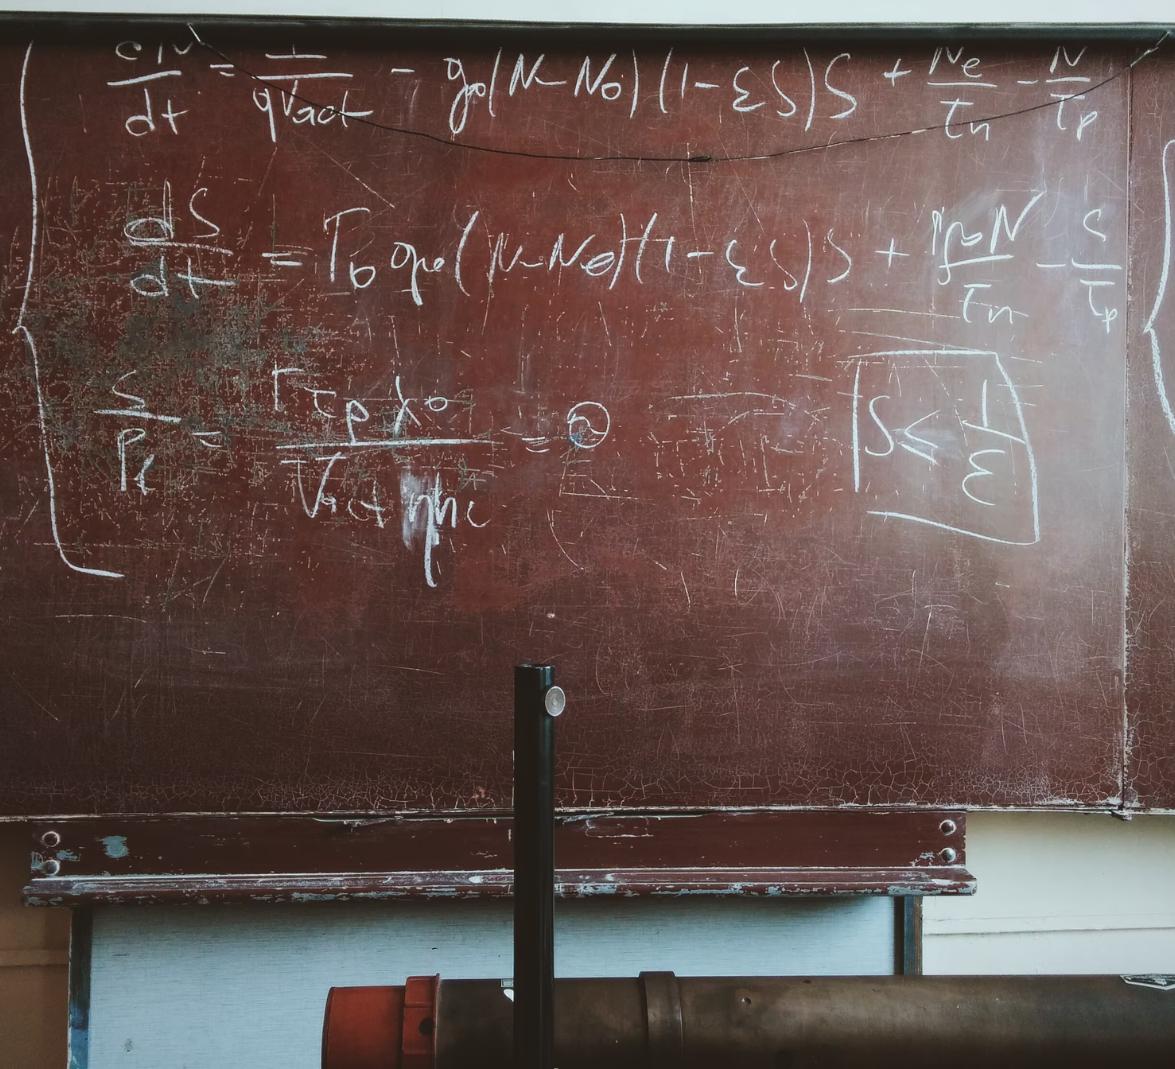 dN/dt = I/qVact - g₀(N-N₀)(1-εS)S + Ne/τn - N/τp
dS/dt = Γ₀g₀(N-N₀)(1-εS)S + Γβ₀N/τn - S/τp
S/Pf = Γτpλ₀/Vactηhc = ϑ
S ≤ 1/ε